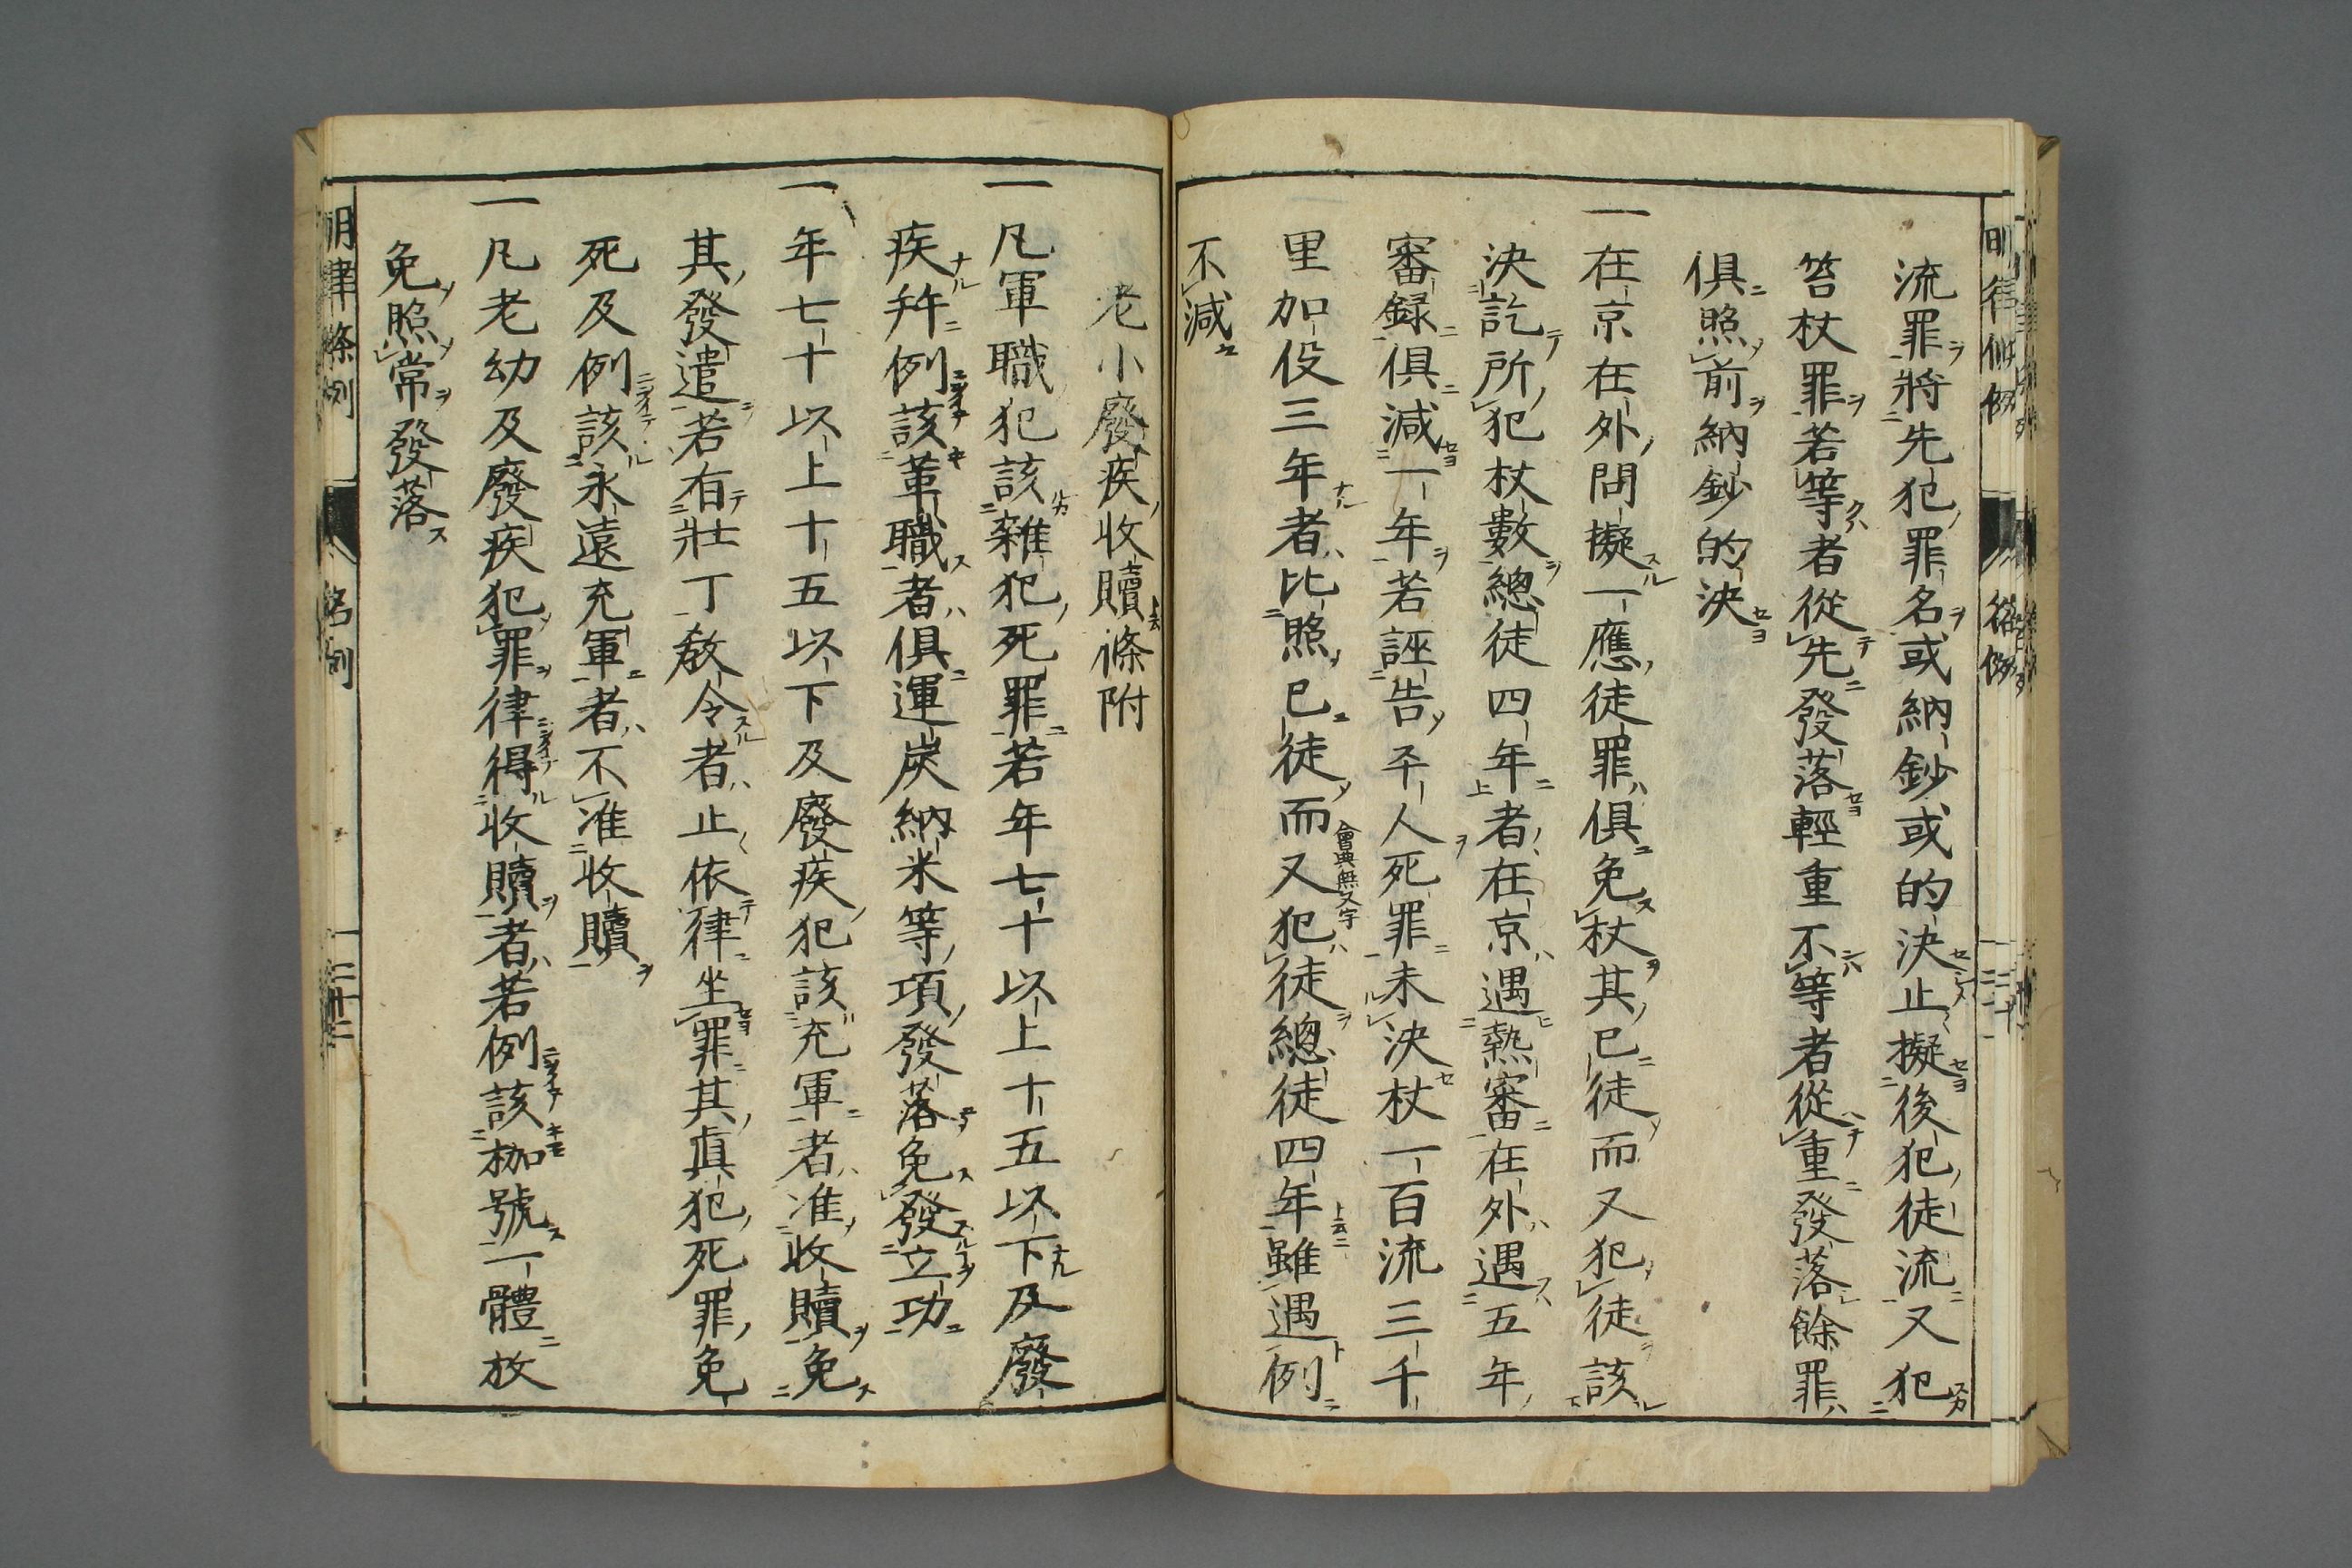 流罪將先犯罪名或納鈔或的決止擬後犯徒流又犯
笞杖罪若等者從先發落輕重不等者從重發落餘罪
俱照前納鈔的決
一在京在外問擬一應徒罪俱免杖其已徒而又犯徒該
決訖所犯杖數總徒四年者在京遇熱審在外遇五年
審録俱減一年若誣告平人死罪未決杖一百流三千
里加役三年者比照已徒而又犯徒總徒四年雖遇例
會典無又字
不減
老小廢疾收贖條附
一凡軍職犯該雜犯死罪若年七十以上十五以下及廢
疾并例該革職者俱運炭納米等項發落免發立功
一年七十以上十五以下及廢疾犯該充軍者准收贖免
其發遣若有壯丁教令者止依律坐罪其真犯死罪免
死及例該永遠充軍者不准收贖
一凡老幼及廢疾犯罪律得收贖者若例該枷號一體放
免照常發落
明律條例
名例